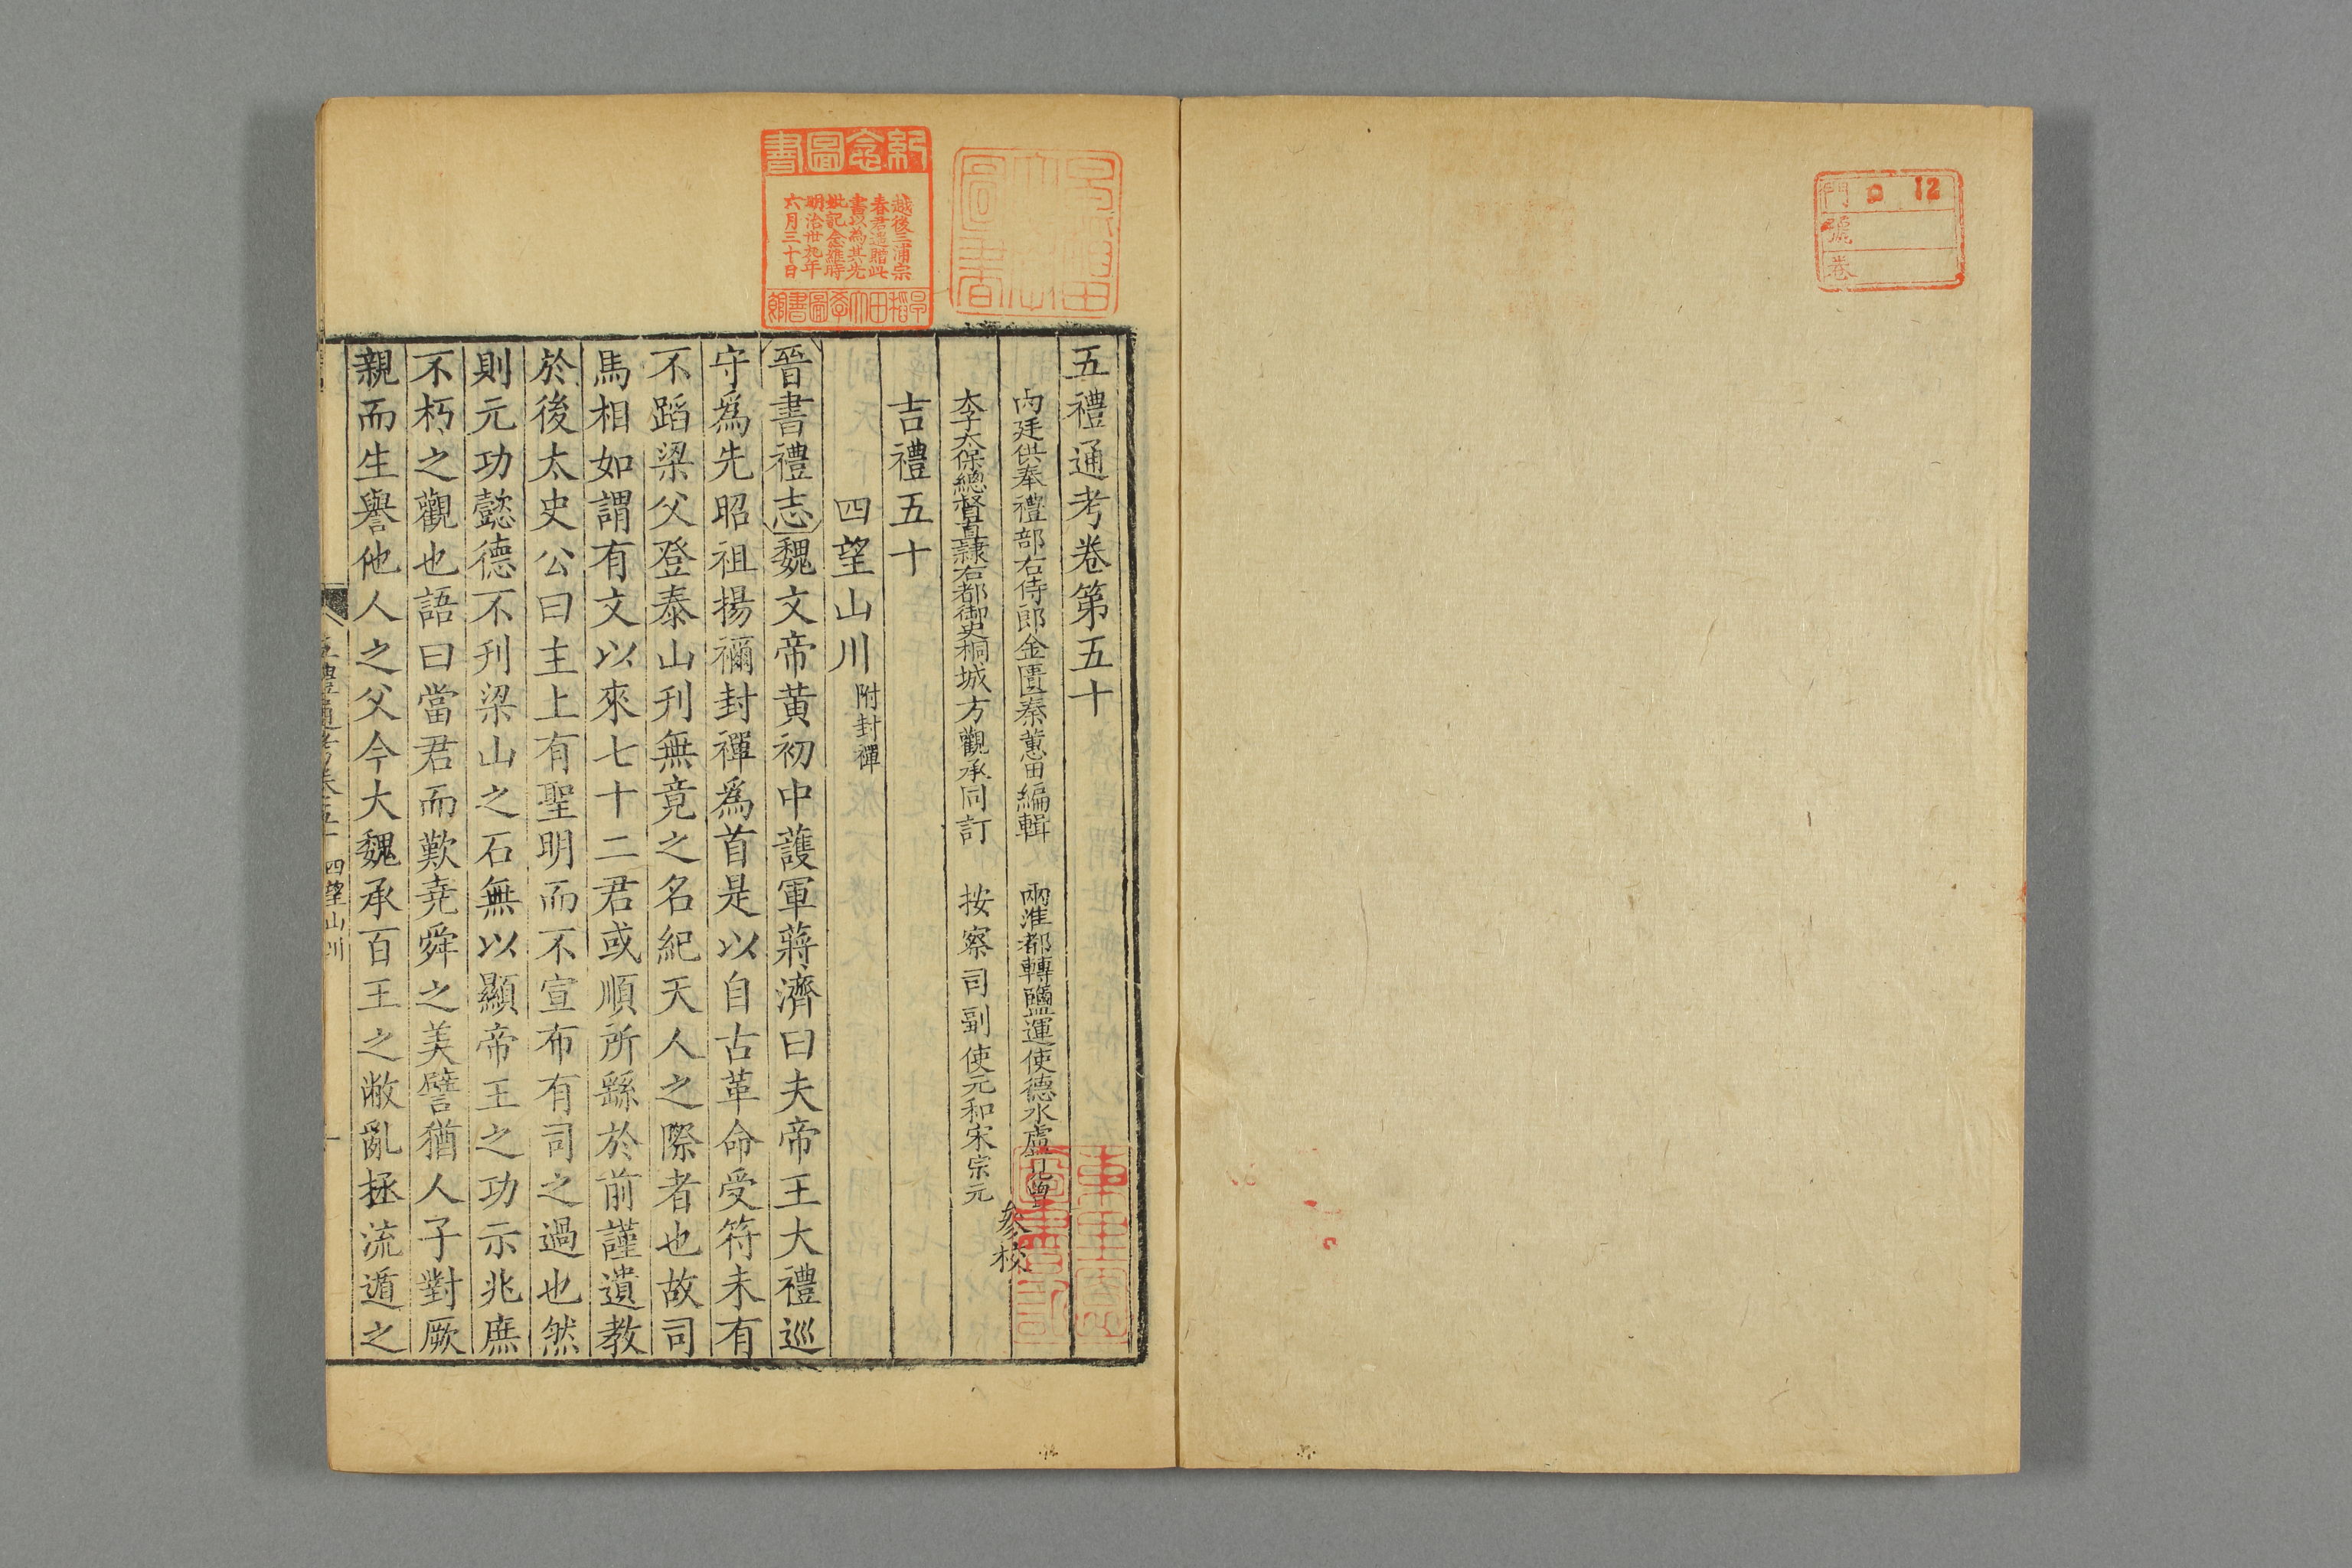 門 口 12
號
卷
早稲田大學圖書
紀念圖書
越後三浦宗
春君遺贈此
書以為其先
妣記念維時
明治卅九年
六月三十日
早稻田大學圖書館
五禮通考卷第五十
內廷供奉禮部右侍郎金匱秦蕙田編輯
太子太保總督直隸右都御史桐城方觀承同訂
兩淮都轉鹽運使德水盧見曾
按察司副使元和宋宗元
參校
吉禮五十
四望山川附封禪
晉書禮志魏文帝黃初中護軍蔣濟曰夫帝王大禮巡
守爲先昭祖揚禰封禪爲首是以自古革命受符未有
不蹈梁父登泰山刋無竟之名紀天人之際者也故司
馬相如謂有文以來七十二君或順所繇於前謹遺教
於後太史公曰主上有聖明而不宣布有司之過也然
則元功懿德不刋梁山之石無以顯帝王之功示兆庶
不朽之觀也語曰當君而歎堯舜之美譬猶人子對厥
親而生譽他人之父今大魏承百王之敝亂拯流遁之
五禮通考卷五十 四望山川 一